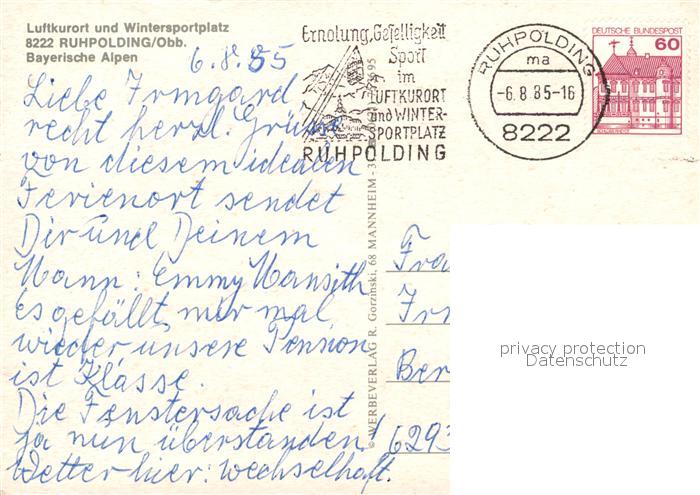 Luftkurort und Wintersportplatz
8222 RUHPOLDING/Obb.
Bayerische Alpen
6.8.85
Erholung, Geselligkeit
Sport
im
LUFTKURORT
und WINTER-
SPORTPLATZ
RUHPOLDING
RUHPOLDING
ma
-6.8.85-16
8222
DEUTSCHE BUNDESPOST
60
Liebe Irmgard,
recht herzl. Grüße
von diesem idealen
Ferienort sendet
Dir und Deinem
Mann: Emmy
Es gefällt mir mal
wieder, unsere Pension
ist Klasse.
Die Fenstersache ist
ja nun überstanden!
Wetter hier: wechselhaft.
© WERBEVERLAG R. Gorzinski, 68 MANNHEIM
Fra
Ir
Ber
6293
privacy protection
Datenschutz